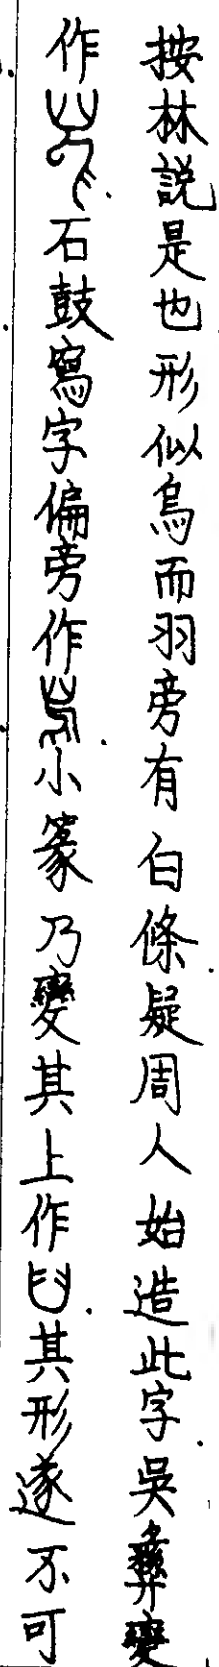 按林説是也形似烏而羽旁有白條疑周人始造此字吳彝變
作石鼓寫字偏旁作小篆乃變其上作其形遂不可